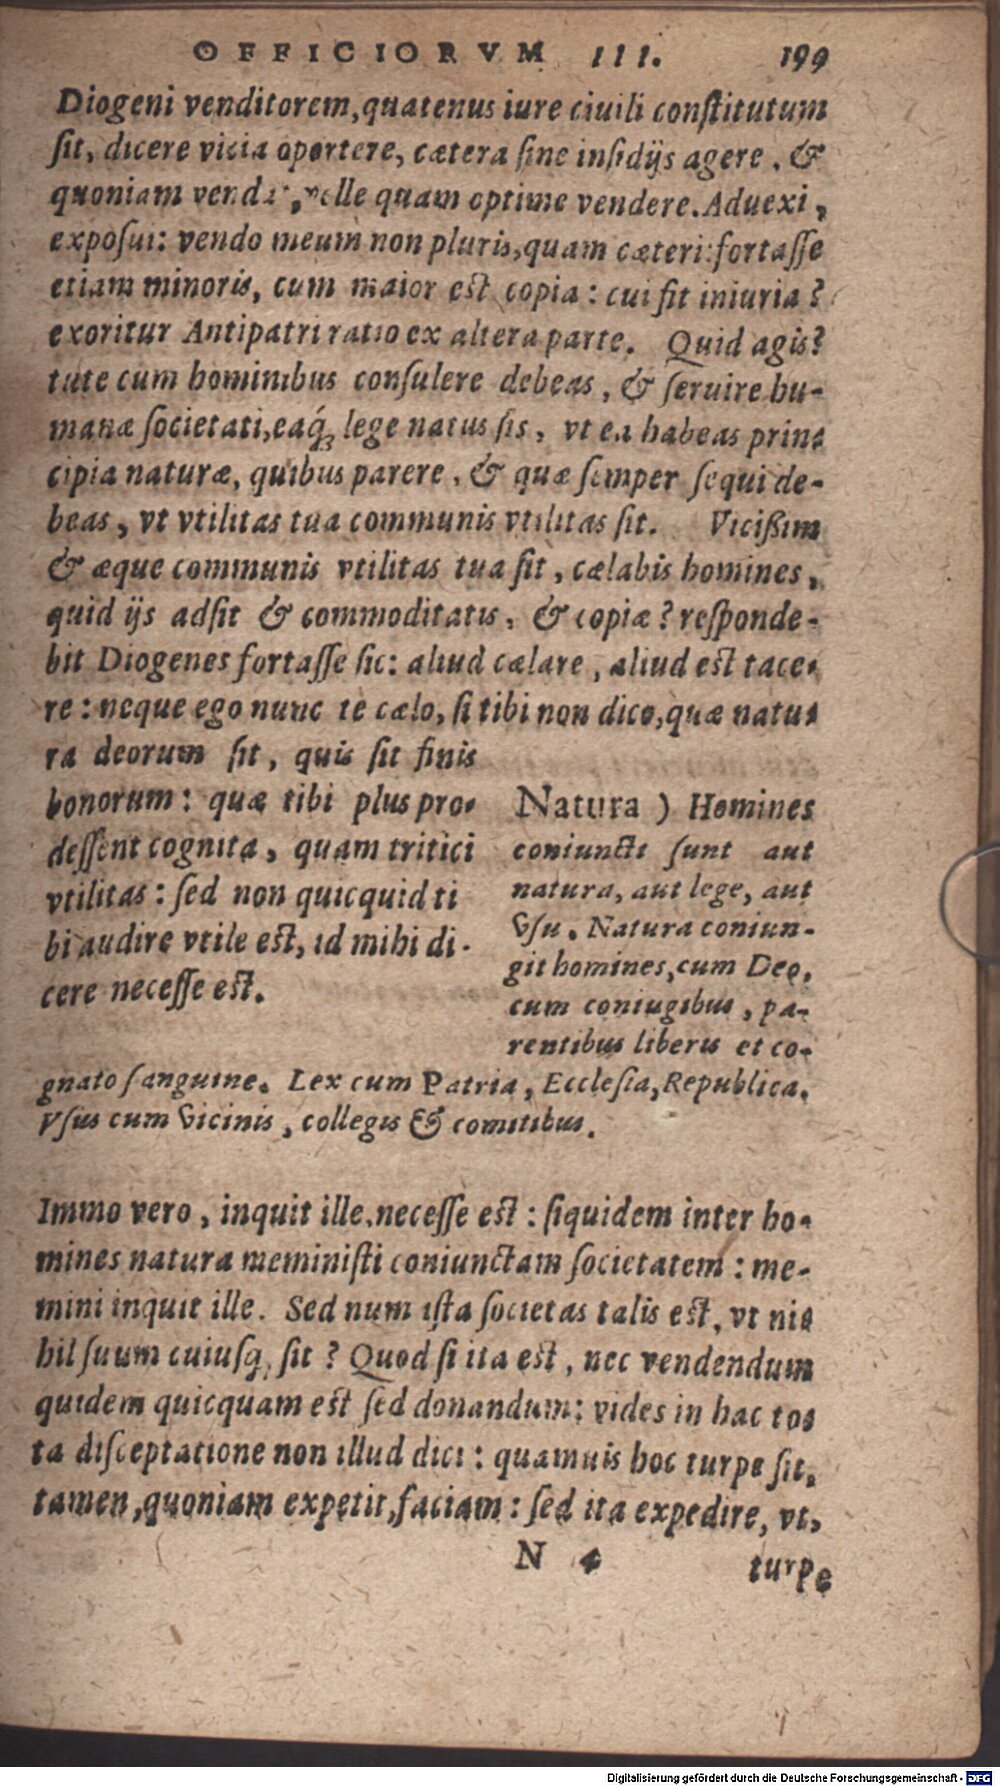 OFFICIORVM III. 199
Diogeni venditorem, quatenus iure ciuili constitutum
sit, dicere vicia oportere, cætera sine insidijs agere, &
quoniam vendat, velle quam optime vendere. Aduexi,
exposui: vendo meum non pluris, quam cæteri: fortasse
etiam minoris, cum maior est copia: cui fit iniuria?
exoritur Antipatri ratio ex altera parte. Quid agis?
tute cum hominibus consulere debeas, & seruire hu-
manæ societati, eaq́; lege natus sis, vt ea habeas prin
cipia naturæ, quibus parere, & quæ semper sequi de-
beas, vt vtilitas tua communis vtilitas sit. Vicißim
& æque communis vtilitas tua sit, cælabis homines,
quid ijs adsit & commoditatis, & copiæ? responde-
bit Diogenes fortasse sic: aliud cælare, aliud est tace-
re: neque ego nunc te cælo, si tibi non dico, quæ natu
ra deorum sit, quis sit finis
bonorum: quæ tibi plus pro-
dessent cognita, quam tritici
vtilitas: sed non quicquid ti
bi audire vtile est, id mihi di-
cere necesse est.
Natura ) Homines
coniuncti sunt aut
natura, aut lege, aut
Vsu. Natura coniun-
git homines, cum Deo,
cum coniugibus, pa-
rentibus liberis et co-
gnato sanguine. Lex cum Patria, Ecclesia, Republica.
Vsus cum Vicinis, collegis & comitibus.
Immo vero, inquit ille, necesse est: siquidem inter ho-
mines natura meministi coniunctam societatem: me-
mini inquit ille. Sed num ista societas talis est, vt ni
hil suum cuiusq; sit? Quod si ita est, nec vendendum
quidem quicquam est sed donandum: vides in hac to
ta disceptatione non illud dici: quamuis hoc turpe sit,
tamen, quoniam expetit, faciam: sed ita expedire, vt,
N 4 turpe
Digitalisierung gefördert durch die Deutsche Forschungsgemeinschaft - DFG